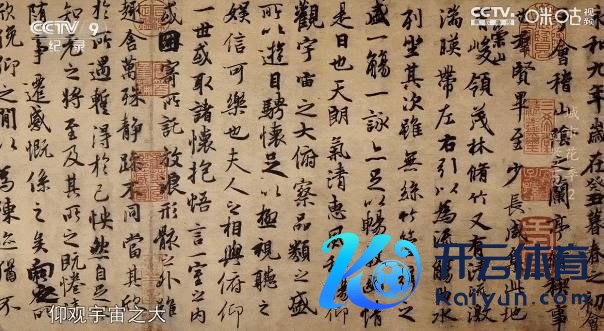 CCTV 9
纪录
CCTV
咪咕视频
和九年歲在癸丑暮春之初會
會稽山陰之蘭亭脩稧事
也羣賢畢至少長咸集此地
有崇山峻領茂林脩竹又有清流激
湍暎帶左右引以為流觴曲水
列坐其次雖無絲竹管弦之
盛一觴一詠亦足以暢敘幽情
是日也天朗氣清惠風和暢仰
觀宇宙之大俯察品類之盛
所以遊目騁懷足以極視聽之
娛信可樂也夫人之相與俯仰
一世或取諸懷抱悟言一室之內
或因寄所託放浪形骸之外雖
趣舍萬殊靜躁不同當其欣
於所遇暫得於己怏然自足
知老之將至及其所之既惓情
隨事遷感慨係之矣向之
欣俛仰之閒以為陳迹猶不
仰观宇宙之大
开云体育
kaiyun.com